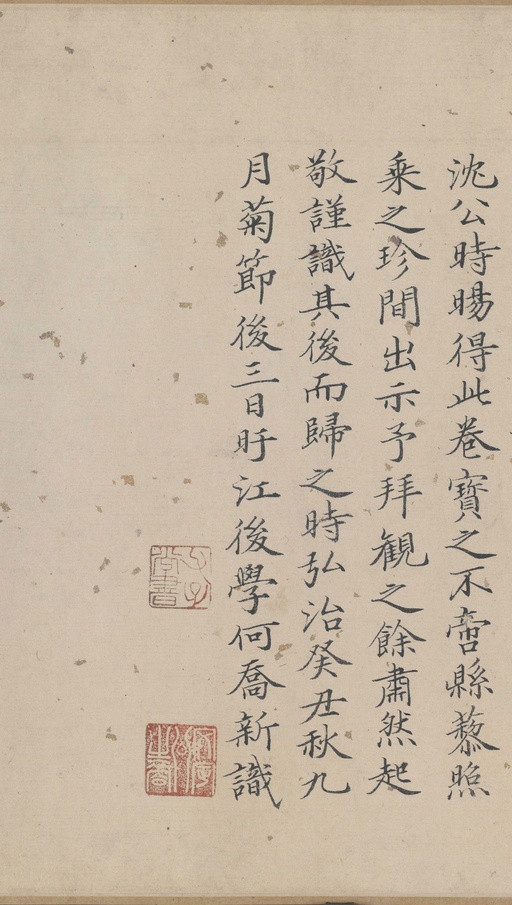 沈公時暘得此卷寶之不啻縣藜照
乘之珍間出示予拜觀之餘肅然起
敬謹識其後而歸之時弘治癸丑秋九
月菊節後三日盱江後學何喬新識